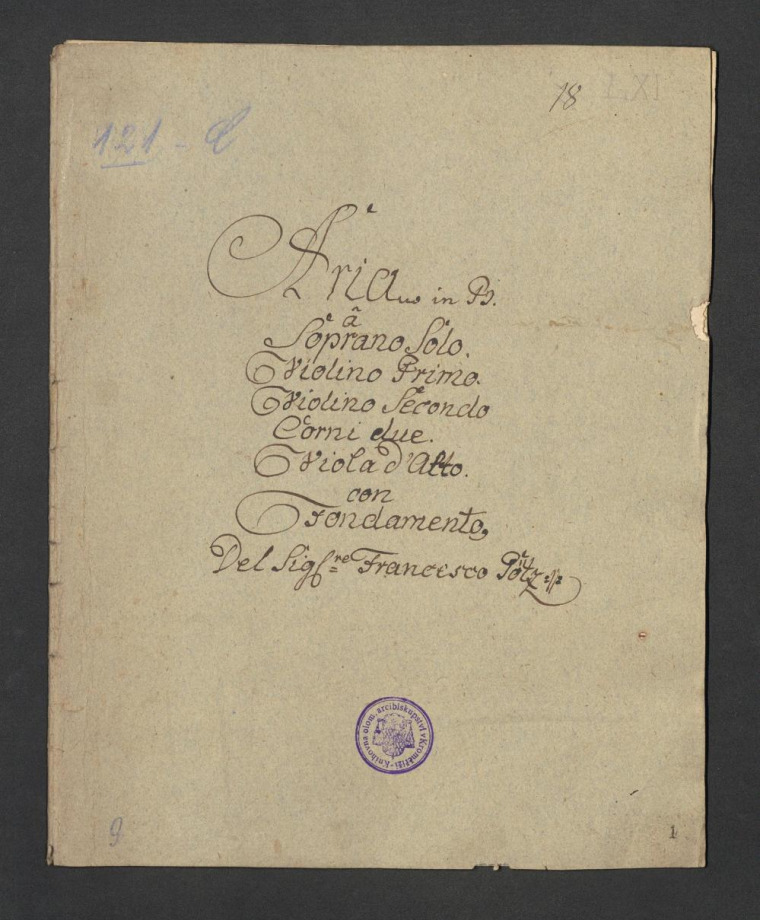 18 IXLI
121 - C
Aria in B.
â
Soprano Solo.
Violino Primo.
Violino Secondo
Corni due.
Viola d'Alto.
con
Fondamento,
Del Sig.re Francesco Pötz
Knihovna olom. arcibiskupství v Kroměříži
9
1